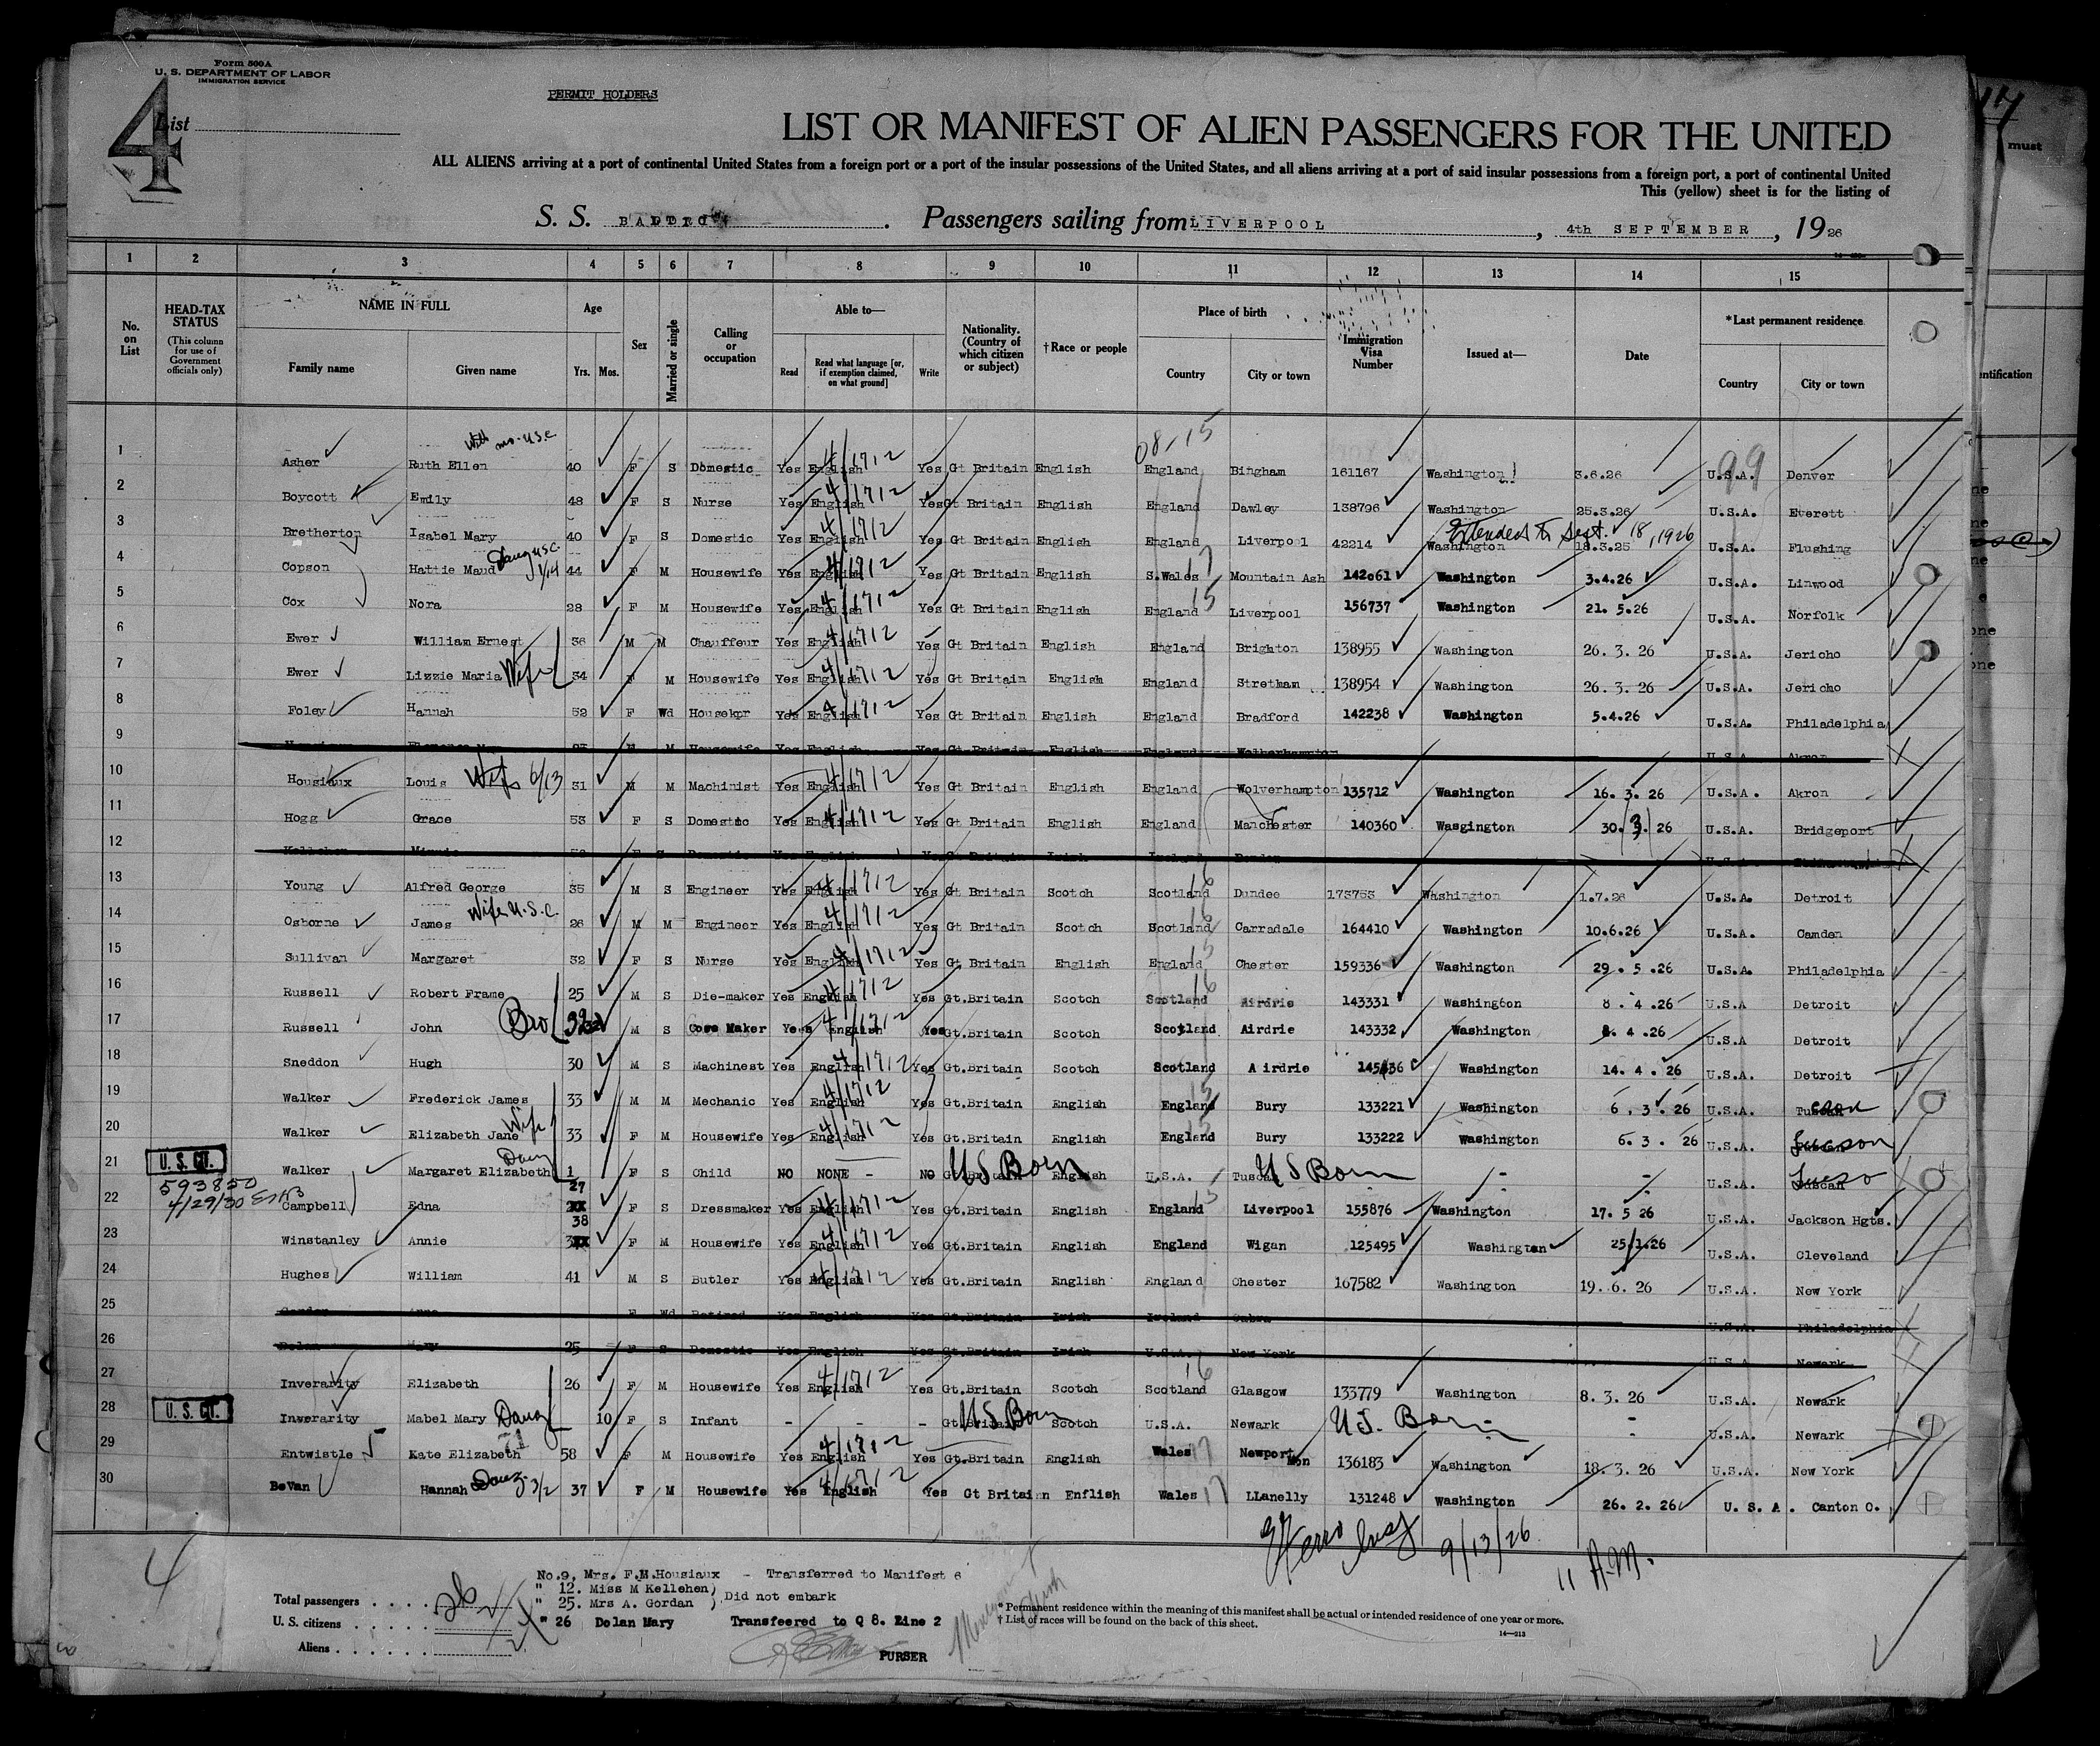 Form 500A
U. S. DEPARTMENT OF LABOR
IMMIGRATION SERVICE
4
List
PERMIT HOLDERS
LIST OR MANIFEST OF ALIEN PASSENGERS FOR THE UNITED
ALL ALIENS arriving at a port of continental United States from a foreign port or a port of the insular possessions of the United States, and all aliens arriving at a port of said insular possessions from a foreign port, a port of continental United
This (yellow) sheet is for the listing of
S. S. BALTIC. Passengers sailing from LIVERPOOL, 4th SEPTEMBER, 1926
1 2 3 4 5 6 7 8 9 10 11 12 13 14 15
No. on List HEAD-TAX STATUS (This column for use of Government officials only) NAME IN FULL Family name Given name Age Yrs. Mos. Sex Married or single Calling or occupation Able to— Read Read what language [or, if exemption claimed, on what ground] Write Nationality. (Country of which citizen or subject) †Race or people Place of birth Country City or town Immigration Visa Number Issued at— Date *Last permanent residence Country City or town
08-15
99
1 Asher Ruth Ellen with mo-USC 40 F S Domestic Yes English 4/1712 Yes Gt Britain English England Bingham 161167 Washington 3.6.26 U.S.A. Denver
2 Boycott Emily 48 F S Nurse Yes English 4/1712 Yes Gt Britain English England Dawley 138796 Washington 25.3.26 U.S.A. Everett
3 Bretherton Isabel Mary 40 F S Domestic Yes English 4/1712 Yes Gt Britain English England Liverpool 42214 Washington Extended to Sept. 18, 1926 18.3.25 U.S.A. Flushing
4 Copson Hattie Maud Daug USC 1/14 44 F M Housewife Yes English 4/1712 Yes Gt Britain English S.Wales 17 Mountain Ash 142061 Washington 3.4.26 U.S.A. Linwood
5 Cox Nora 28 F M Housewife Yes English 4/1712 Yes Gt Britain English England 15 Liverpool 156737 Washington 21. 5.26 U.S.A. Norfolk
6 Ewer William Ernest 36 M M Chauffeur Yes English 4/1712 Yes Gt Britain English England Brighton 138955 Washington 26. 3. 26 U.S.A. Jericho
7 Ewer Lizzie Maria Wife 34 F M Housewife Yes English 4/1712 Yes Gt Britain English England Stretham 138954 Washington 26. 3. 26 U.S.A. Jericho
8 Foley Hannah 52 F Wd Housekpr Yes English 4/1712 Yes Gt Britain English England Bradford 142238 Washington 5.4.26 U.S.A. Philadelphia
9 M Housewife Yes English Yes Gt Britain English England Wolverhampton U.S.A. Akron
10 Housiaux Louis Wife 6/13 31 M M Machinist Yes English 4/1712 Yes Gt Britain English England Wolverhampton 135712 Washington 16. 3. 26 U.S.A. Akron
11 Hogg Grace 53 F S Domestic Yes English 4/1712 Yes Gt Britain English England Manchester 140360 Wasgington 30. 3. 26 U.S.A. Bridgeport
12 Kellehen Minnie F S Domestic Yes English Gt Britain Irish Ireland U.S.A.
13 Young Alfred George 35 M S Engineer Yes English 4/1712 Yes Gt Britain Scotch Scotland 16 Dundee 173753 Washington 1.7.26 U.S.A. Detroit
14 Osborne James Wife U.S.C. 26 M M Engineer Yes English 4/1712 Yes Gt Britain Scotch Scotland 16 Carradale 164410 Washington 10.6.26 U.S.A. Camden
15 Sullivan Margaret 32 F S Nurse Yes English 4/1712 Yes Gt Britain English England 15 Chester 159336 Washington 29. 5 .26 U.S.A. Philadelphia
16 Russell Robert Frame 25 M S Die-maker Yes English 4/1712 Yes Gt.Britain Scotch Scotland 16 Airdrie 143331 Washington 8. 4 .26 U.S.A Detroit
17 Russell John Bro 32 M S Core Maker Yes English 4/1712 Yes Gt.Britain Scotch Scotland Airdrie 143332 Washington 8. 4 .26 U.S.A Detroit
18 Sneddon Hugh 30 M S Machinest Yes English 4/1712 Yes Gt.Britain Scotch Scotland Airdrie 145436 Washington 14. 4. 26 U.S.A. Detroit
19 Walker Frederick James 33 M M Mechanic Yes English 4/1712 Yes Gt.Britain English England 15 Bury 133221 Washington 6. 3. 26 U.S.A.
20 Walker Elizabeth Jane Wife 33 F M Housewife Yes English 4/1712 Yes Gt.Britain English England 15 Bury 133222 Washington 6. 3. 26 U.S.A. Tucson
21 U. S. CT. Walker Margaret Elizabeth Daug 1 F S Child NO NONE - NO Gt.Britain US Born English U.S.A. Tuscan US Born - - U.S.A. Tuscan
593850
4/29/30
22 Campbell Edna 27 F S Dressmaker Yes English 4/1712 Yes Gt.Britain English England 15 Liverpool 155876 Washington 17. 5 26 U.S.A. Jackson Hgts.
23 Winstanley Annie 38 F M Housewife Yes English 4/1712 Yes Gt.Britain English England Wigan 125495 Washington 25.1.26 U.S.A. Cleveland
24 Hughes William 41 M S Butler Yes English 4/1712 Yes Gt.Britain English England Chester 167582 Washington 19. 6. 26 U.S.A. New York
25 Gordan Anne F Wd Retired Yes English Yes Gt.Britain Irish Ireland Cabra U.S.A. Philadelphia
26 Dolan Mary 25 F S Domestic Yes English Yes Gt.Britain Irish U.S.A. New York U.S.A. Newark
27 Inverarity Elizabeth 26 F M Housewife Yes English 4/1712 Yes Gt.Britain Scotch Scotland 16 Glasgow 133779 Washington 8. 3. 26 U.S.A. Newark
28 U. S. CT. Inverarity Mabel Mary Daug 10 F S Infant - - - Gt.Britain US Born Scotch U.S.A. Newark U.S. Born - - U.S.A. Newark
29 Entwistle Kate Elizabeth 71 58 F M Housewife Yes English 4/1712 Yes Gt.Britain English Wales 17 Newport Mon 136183 Washington 18. 3. 26 U.S.A. New York
30 BeVan Hannah Daug. 3/2 37 F M Housewife Yes English 4/1712 Yes Gt Britain Enflish Wales 17 LLanelly 131248 Washington 26. 2. 26 U. S. A. Canton O.
9/13/26 11 A.M.
4
No.9, Mrs. F.M.Housiaux - Transferred to Manifest 6
" 12. Miss M Kellehen)
" 25. Mrs A. Gordan ) Did not embark
" 26 Dolan Mary Transfeered to Q 8. Line 2
PURSER
Total passengers 26
U. S. citizens 2
Aliens
* Permanent residence within the meaning of this manifest shall be actual or intended residence of one year or more.
† List of races will be found on the back of this sheet.
14—213
must
ntification